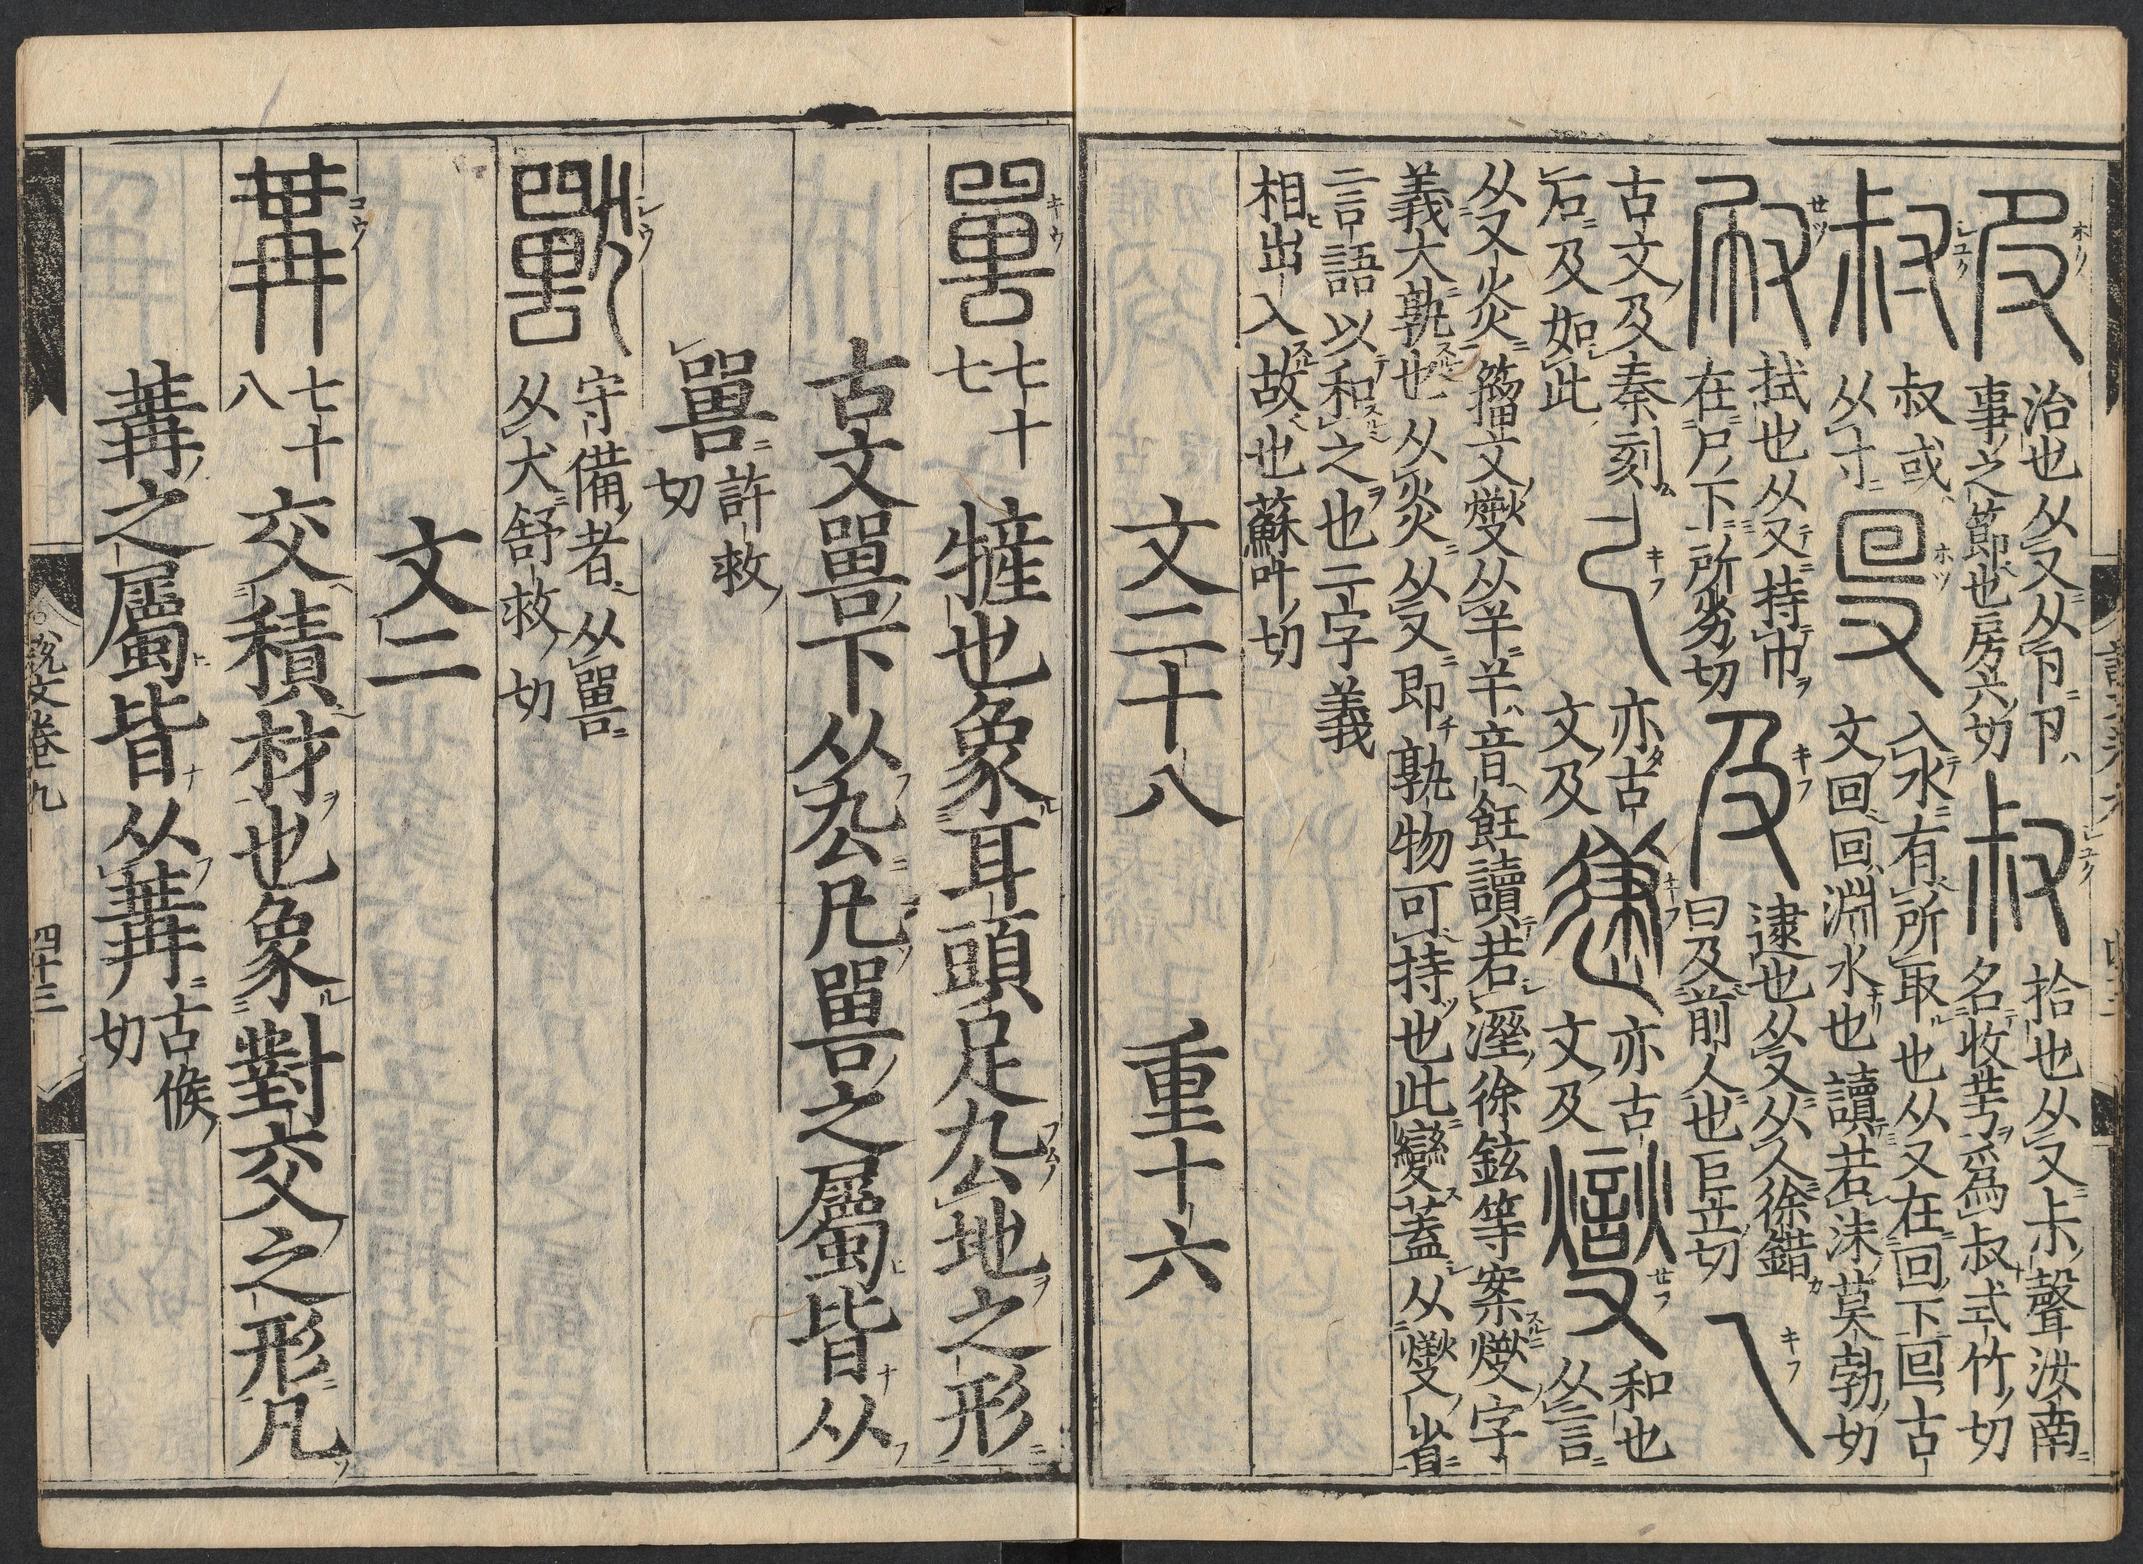 𠬝
治也从又从卪卪
事之節也房六切
叔
拾也从又尗聲汝南
名收芌為叔式竹切
叔或
从寸
𠬛
入水有所取也从又在回下回古
文回回淵水也讀若沬莫勃切
㕞
拭也从又持巾
在尸下所劣切
及
逮也从又从人徐鍇
曰及前人也巨立切
乁
古文及秦刻
石及如此
亦古
文及
亦古
文及
燮
和也
从言
从又炎籀文燮从𢆉𢆉音飪讀若溼徐鉉等案燮字
義大孰也从炎从又即孰物可持也此燮蓋从燮省
二言語以和之也二字義
相出入故也蘇叶切
文二十八 重十六
嘼 七十七 㹌也象耳頭足厹地之形
古文嘼下从厹凡嘼之屬皆从
嘼 許救切
獸
守備者从嘼
从犬舒救切
文二
冓 七十八 交積材也象對交之形凡
冓之屬皆从冓 古候切
說文卷九 四十三